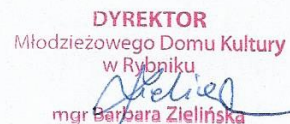 DYREKTOR
Młodzieżowego Domu Kultury
w Rybniku
mgr Barbara Zielińska